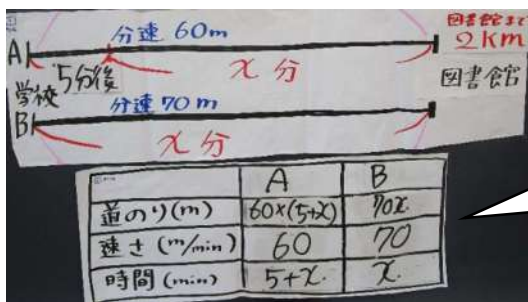 分速 60m
図書館まで
2km
A
5分後
x 分
図書館
学校
分速 70m
B
x 分
A B
道のり(m) 60×(5+x) 70x.
速さ(m/min) 60 70
時間(min) 5+x. x.